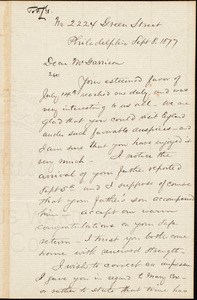 No 2224 Green Street
Philadelphia Sept 8. 1877
Dear Mr Garrison
Your esteemed favor of
July 14th reached me duly, and was
very interesting to us all - we are
glad you could visit England
under such favorable auspices - and
I am sure that you have enjoyed it
very much - I notice the
arrival of your father reported
Sept 5th and I suppose of course
that your father's son accompanied
him - accept our warm
congratulations on your safe
return - I trust you both come
home with renewed strength.
I wish to correct an impression
I gave you in regard to
or rather to state that time has